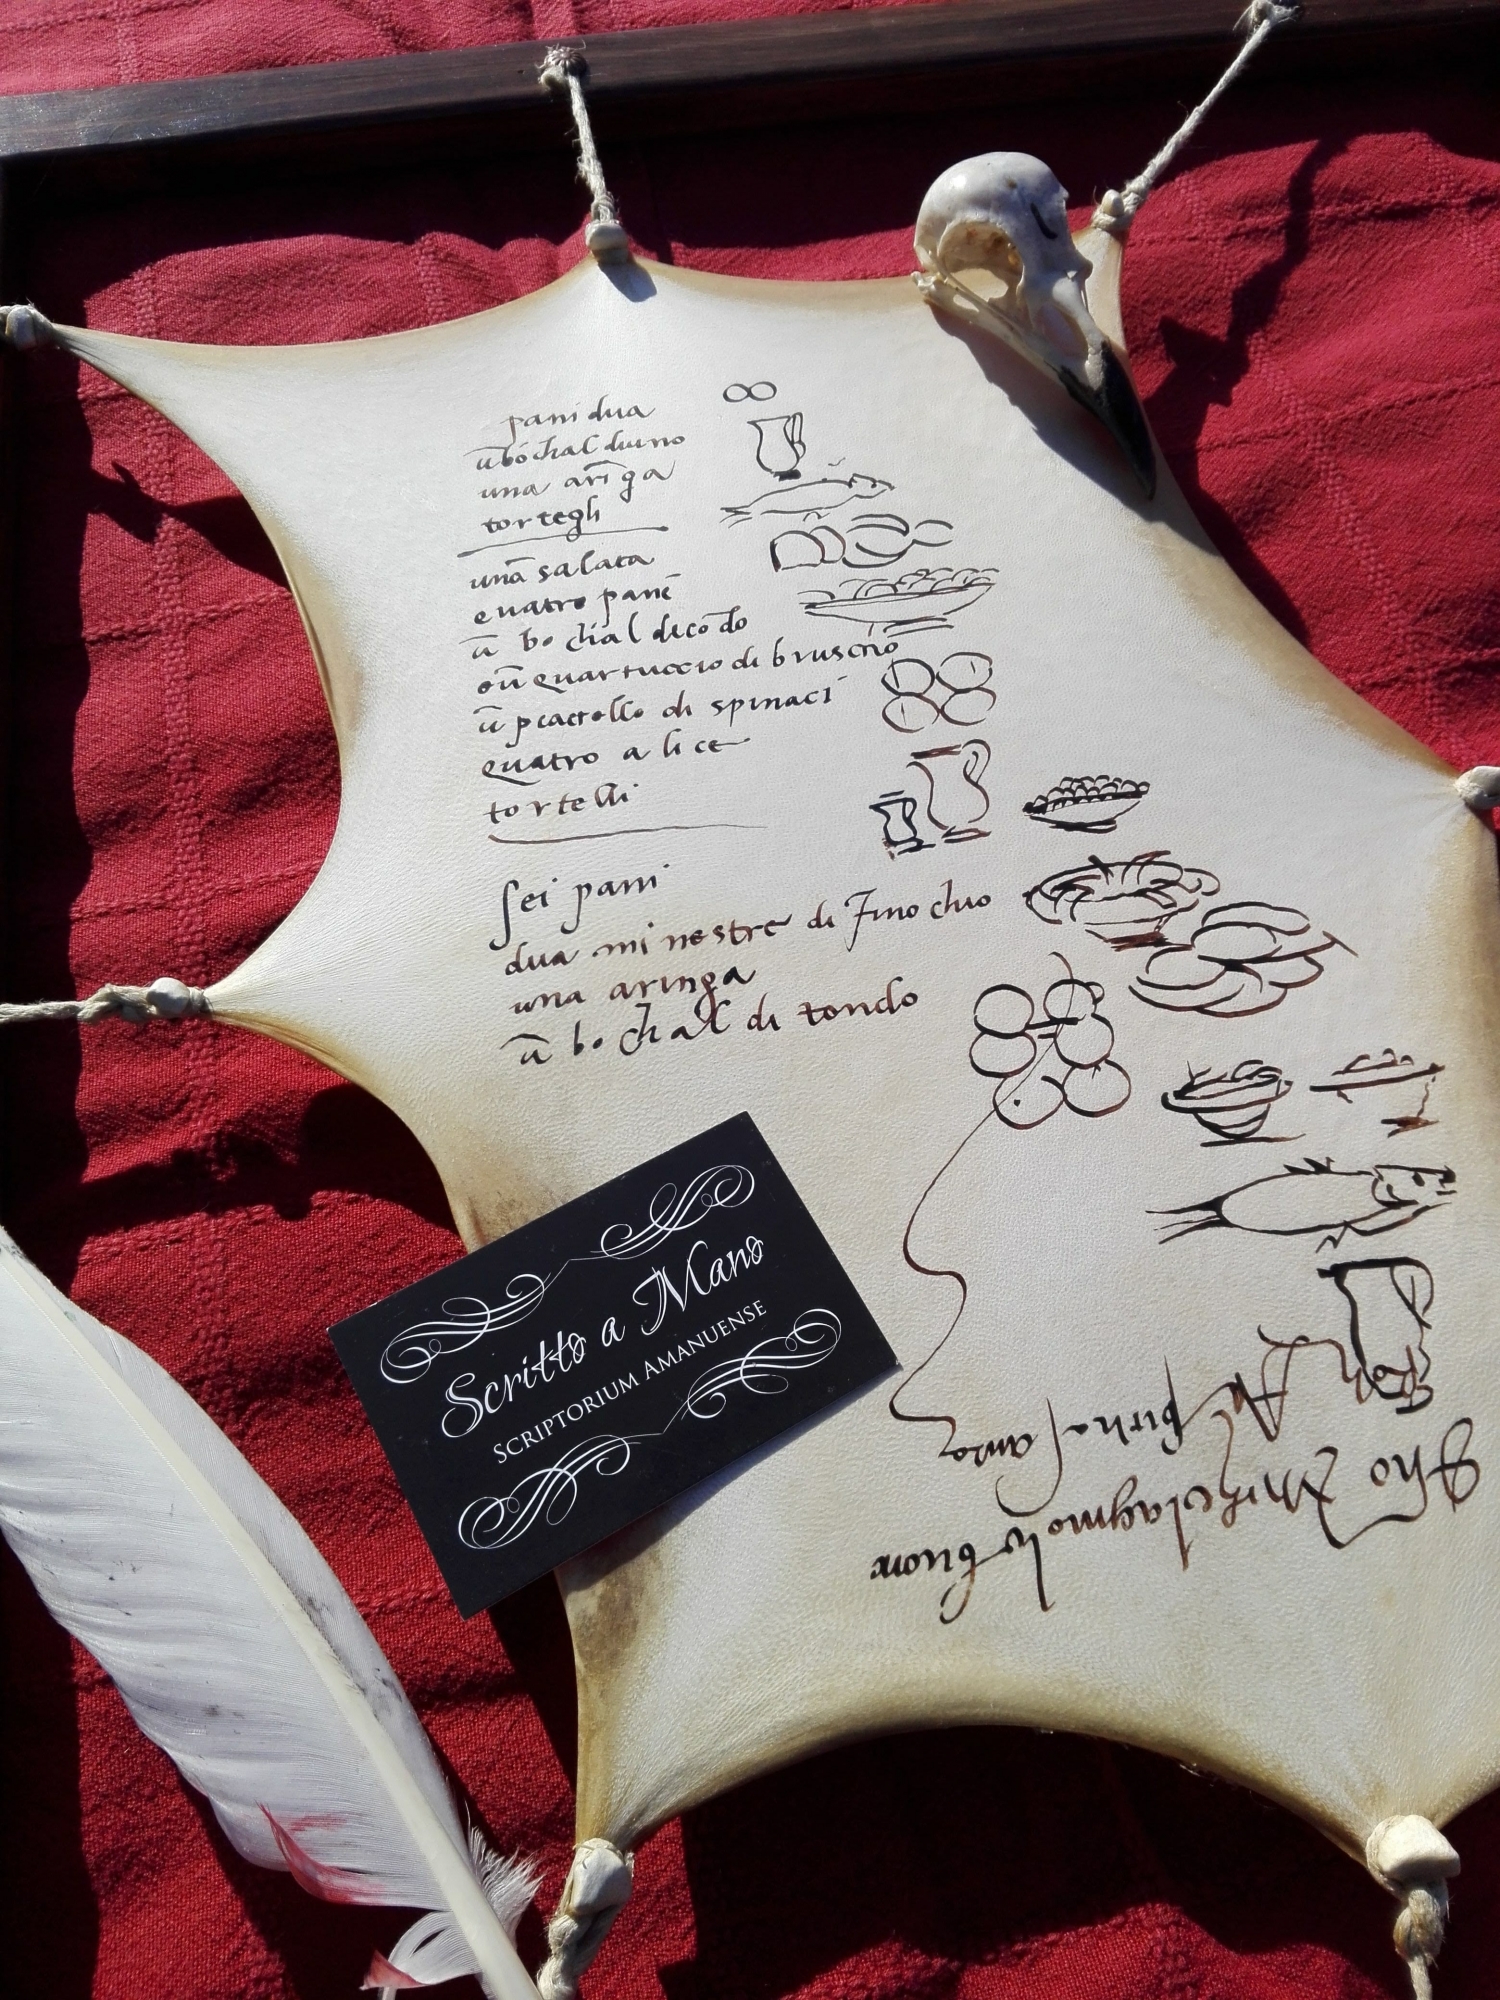 pani dua
ū bo chal duino
una arīga
tortegli
una salata
quatro pani
ū bo chal decōdo
e ū quartuccio di bruscho
ū piactello di spinaci
quatro a lice
tortelli
sei pani
dua mi nestre di finochio
una aringa
ū bo chal di tondo
Scritto a Mano
SCRIPTORIUM AMANUENSE